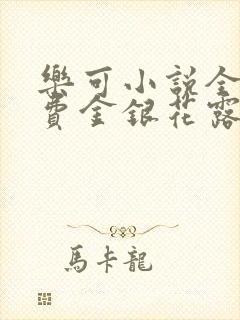 樂可小說全
費金銀花露
馬卡龍